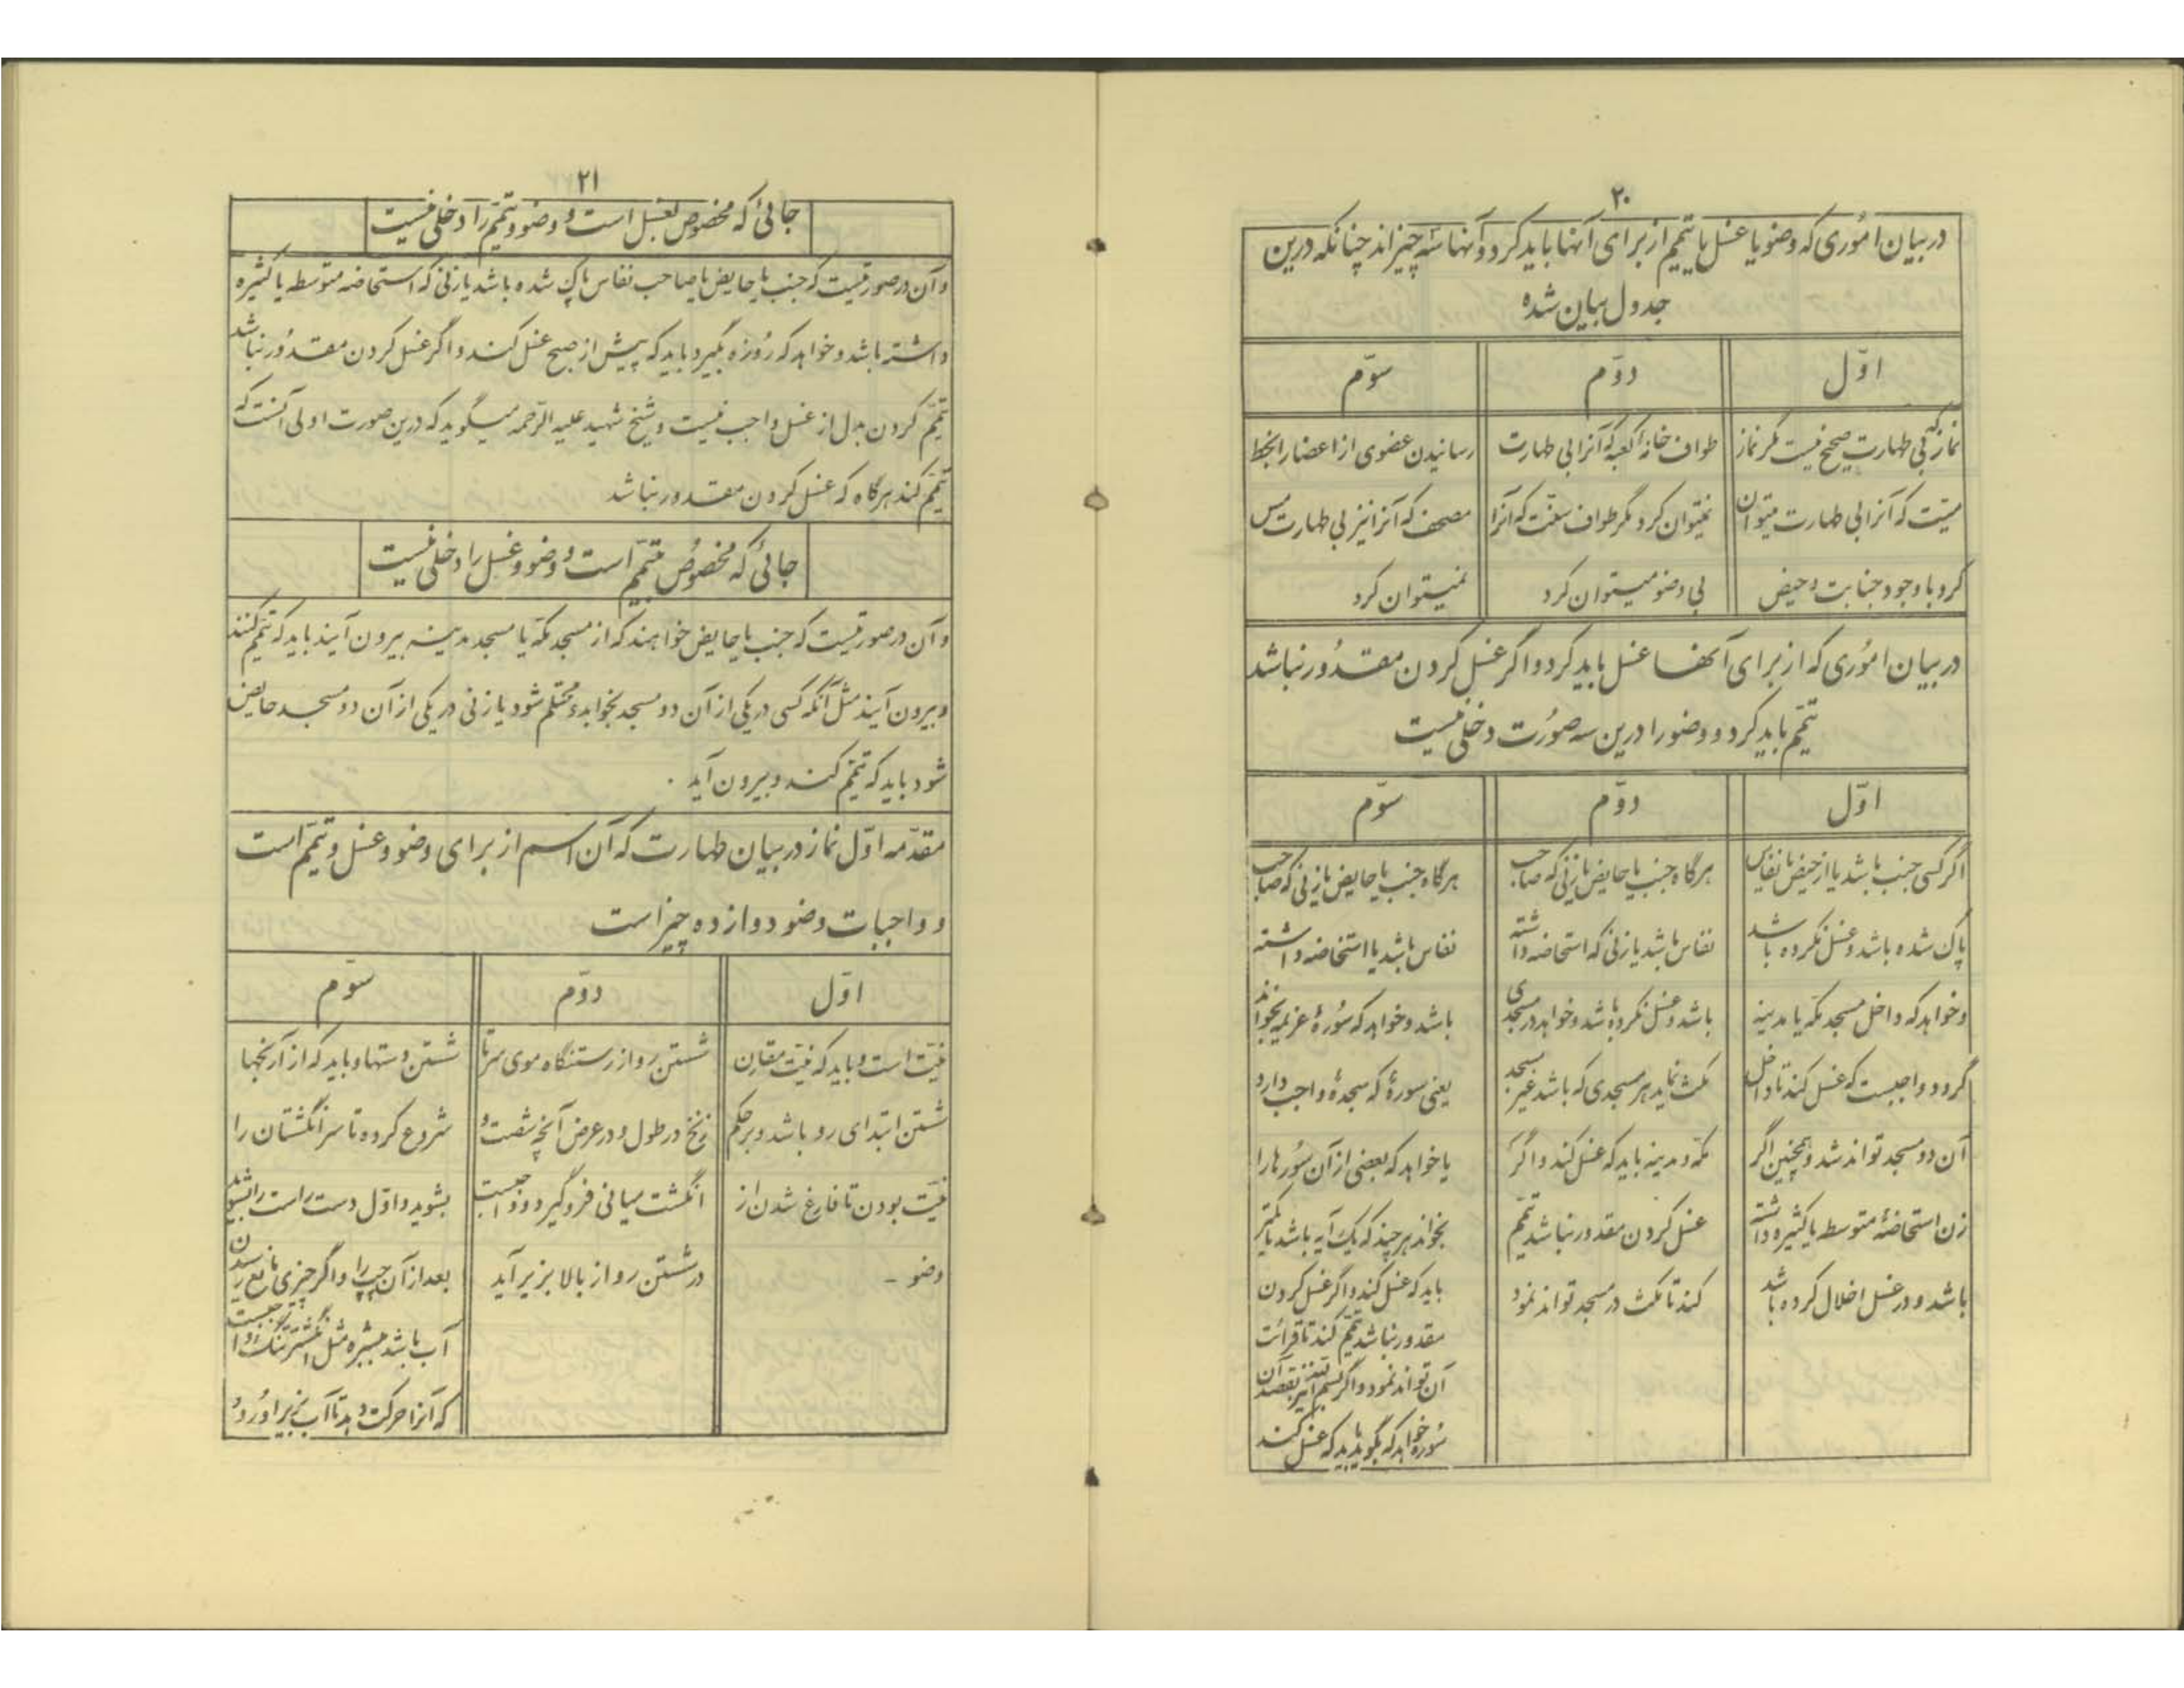 ۲۰
در بیان اموری که وضو یا غسل یا تیمم از برای آنها باید کرد و آنها سه چیزاند چنانکه درین
جدول بیان شده
اوّل
نماز که بی طهارت صحیح نیست مگر نماز
میّت که آنرا بی طهارت میتوان
کرد با وجود جنابت و حیض
دوّم
طواف خانه کعبه که آنرا بی طهارت
نمیتوان کرد مگر طواف سنّت که آنرا
بی وضو میتوان کرد
سوّم
رسانیدن عضوی از اعضا را بخط
مصحف که آنرا نیز بی طهارت مس
نمیتوان کرد
در بیان اموری که از برای آنها غسل باید کرد و اگر غسل کردن مقدور نباشد
تیمّم باید کرد و وضو را درین سه صورت دخلی نیست
اوّل
اگر کسی جنب باشد یا از حیض یا نفاس
پاک شده باشد و غسل نکرده باشد
و خواهد که داخل مسجد مکه یا مدینه
گردد واجبست که غسل کند تا داخل
آن دو مسجد تواند شد و همچنین اگر
زن استحاضهٔ متوسط یا کثیره داشته
باشد و در غسل اخلال کرده باشد
دوّم
هرگاه جنب یا حایض یا زنی که صاحب
نفاس باشد یا زنی که استحاضه داشته
باشد و غسل نکرده باشد و خواهد در مسجدی
مکث نماید هر مسجدی که باشد غیر مسجد
مکه و مدینه باید که غسل کند و اگر
غسل کردن مقدور نباشد تیمّم
کند تا مکث در مسجد تواند نمود
سوّم
هرگاه جنب یا حایض یا زنی که صاحب
نفاس باشد یا استحاضه داشته
باشد و خواهد که سورهٔ عزیمه بخواند
یعنی سورهٔ که سجدهٔ واجب دارد
یا خواهد که بعضی از آن سوره ها را
بخواند هر چند که یک آیه باشد یا کمتر
باید که غسل کند و اگر غسل کردن
مقدور نباشد تیمّم کند تا قرائت
آن تواند نمود و اگر بسم الله نیز بقصد آن
سوره خواهد که بگوید باید که غسل کند
۲۱
جائی که مخصوص بغسل است و وضو و تیمّم را دخلی نیست
و آن در صورتیست که جنب یا حایض یا صاحب نفاس پاک شده باشد یا زنی که استحاضه متوسطه یا کثیره
داشته باشد و خواهد که روزه بگیرد باید که پیش از صبح غسل کند و اگر غسل کردن مقدور نباشد
تیمّم کردن بدل از غسل واجب نیست و شیخ شهید علیه الرحمه میگوید که درین صورت اولی آنست که
تیمّم کند هرگاه که غسل کردن مقدور نباشد
جائی که مخصوص بتیمّم است و وضو و غسل را دخلی نیست
و آن در صورتیست که جنب یا حایض خواهند که از مسجد مکه یا مسجد مدینه بیرون آیند باید که تیمّم کنند
و بیرون آیند مثل آنکه کسی در یکی از آن دو مسجد بخوابد و محتلم شود یا زنی در یکی از آن دو مسجد حایض
شود باید که تیمّم کند و بیرون آید .
مقدّمه اوّل نماز در بیان طهارت که آن اسم از برای وضو و غسل و تیمّم است
و واجبات وضو دوازده چیز است
اوّل
نیّت است و باید که نیّت مقارن
شستن ابتدای رو باشد و بر حکم
نیّت بودن تا فارغ شدن از
وضو -
دوّم
شستن رو از رستنگاه موی سر تا
زنخ در طول و در عرض آنچه شصت و
انگشت میانی فرو گیرد و واجبست
در شستن رو از بالا بزیر آید
سوّم
شستن دستها و باید که از آرنجها
شروع کرده تا سر انگشتان را
بشوید و اوّل دست راست را بشوید
بعد از آن چپ را و اگر چیزی مانع رسیدن
آب باشد ببشره مثل انگشتر تنگ واجبست
که آنرا حرکت دهد تا آب بزیر او رود